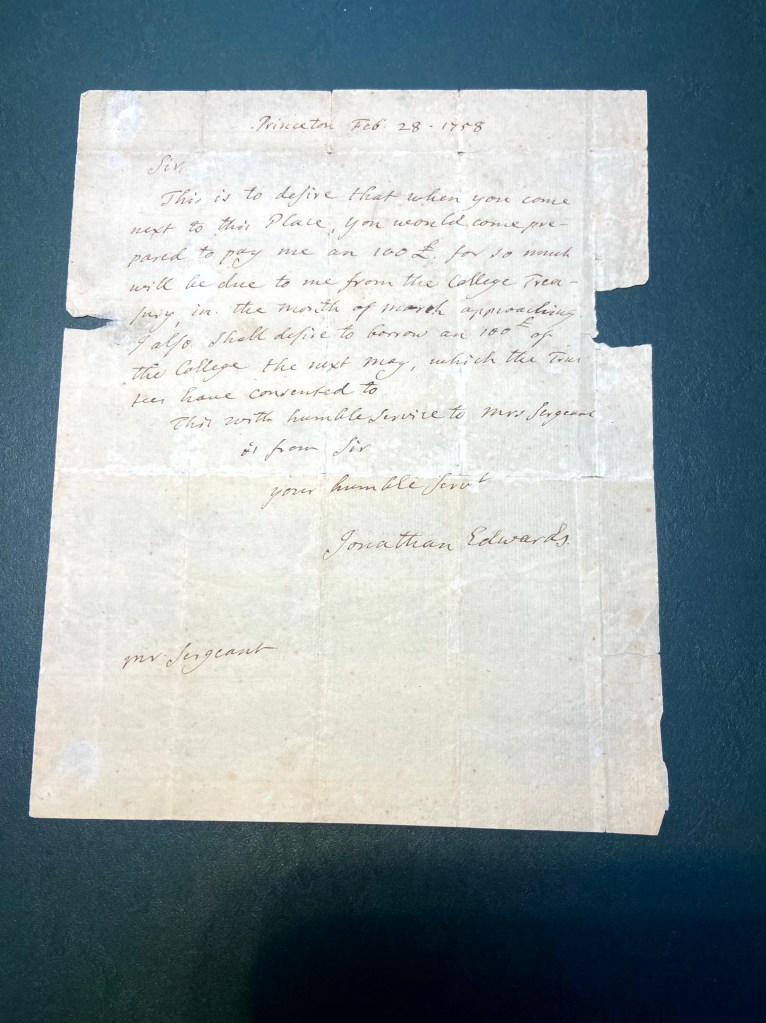 Princeton Feb. 28. 1758
Sir,
This is to desire that when you come
next to this Place, you would come pre-
pared to pay me an 100 £. for so much
will be due to me from the College Trea-
sury, in the month of march approaching
I also shall desire to borrow an 100£ of
the College the next may, which the Trus
tees have consented to
This with humble service to mrs Sergeant
is from Sir
your humble Servt
Jonathan Edwards.
mr. Sergeant